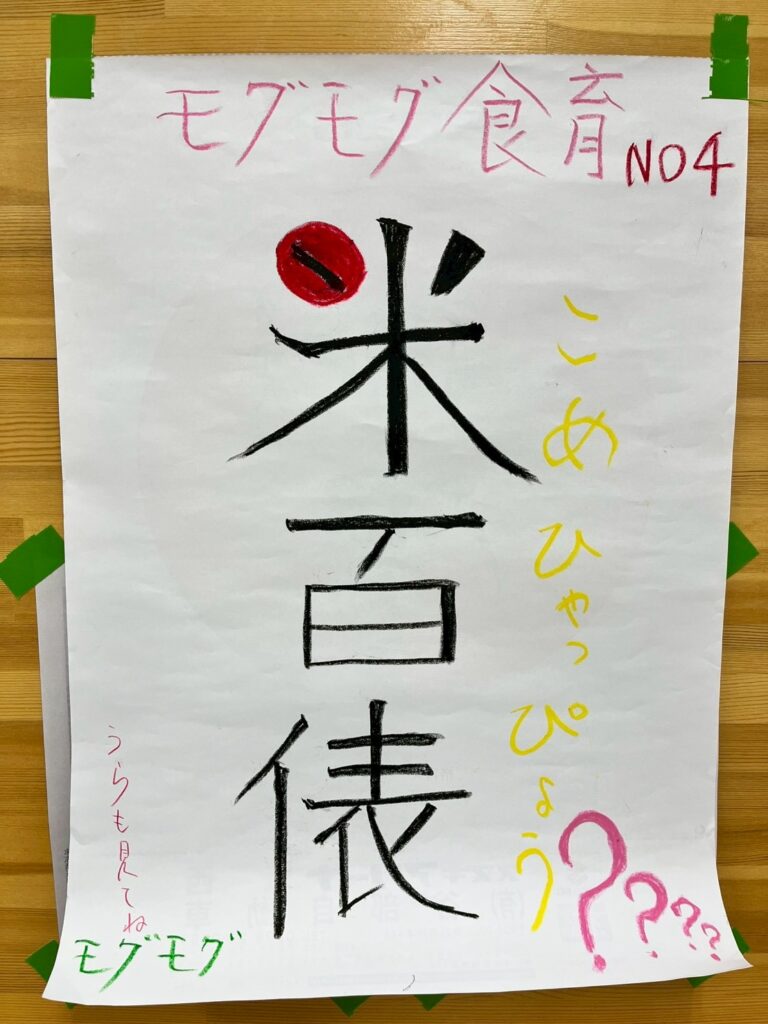 モグモグ食育
NO4
米百俵
こめひゃっぴょう
????
うらも見てね
モグモグ